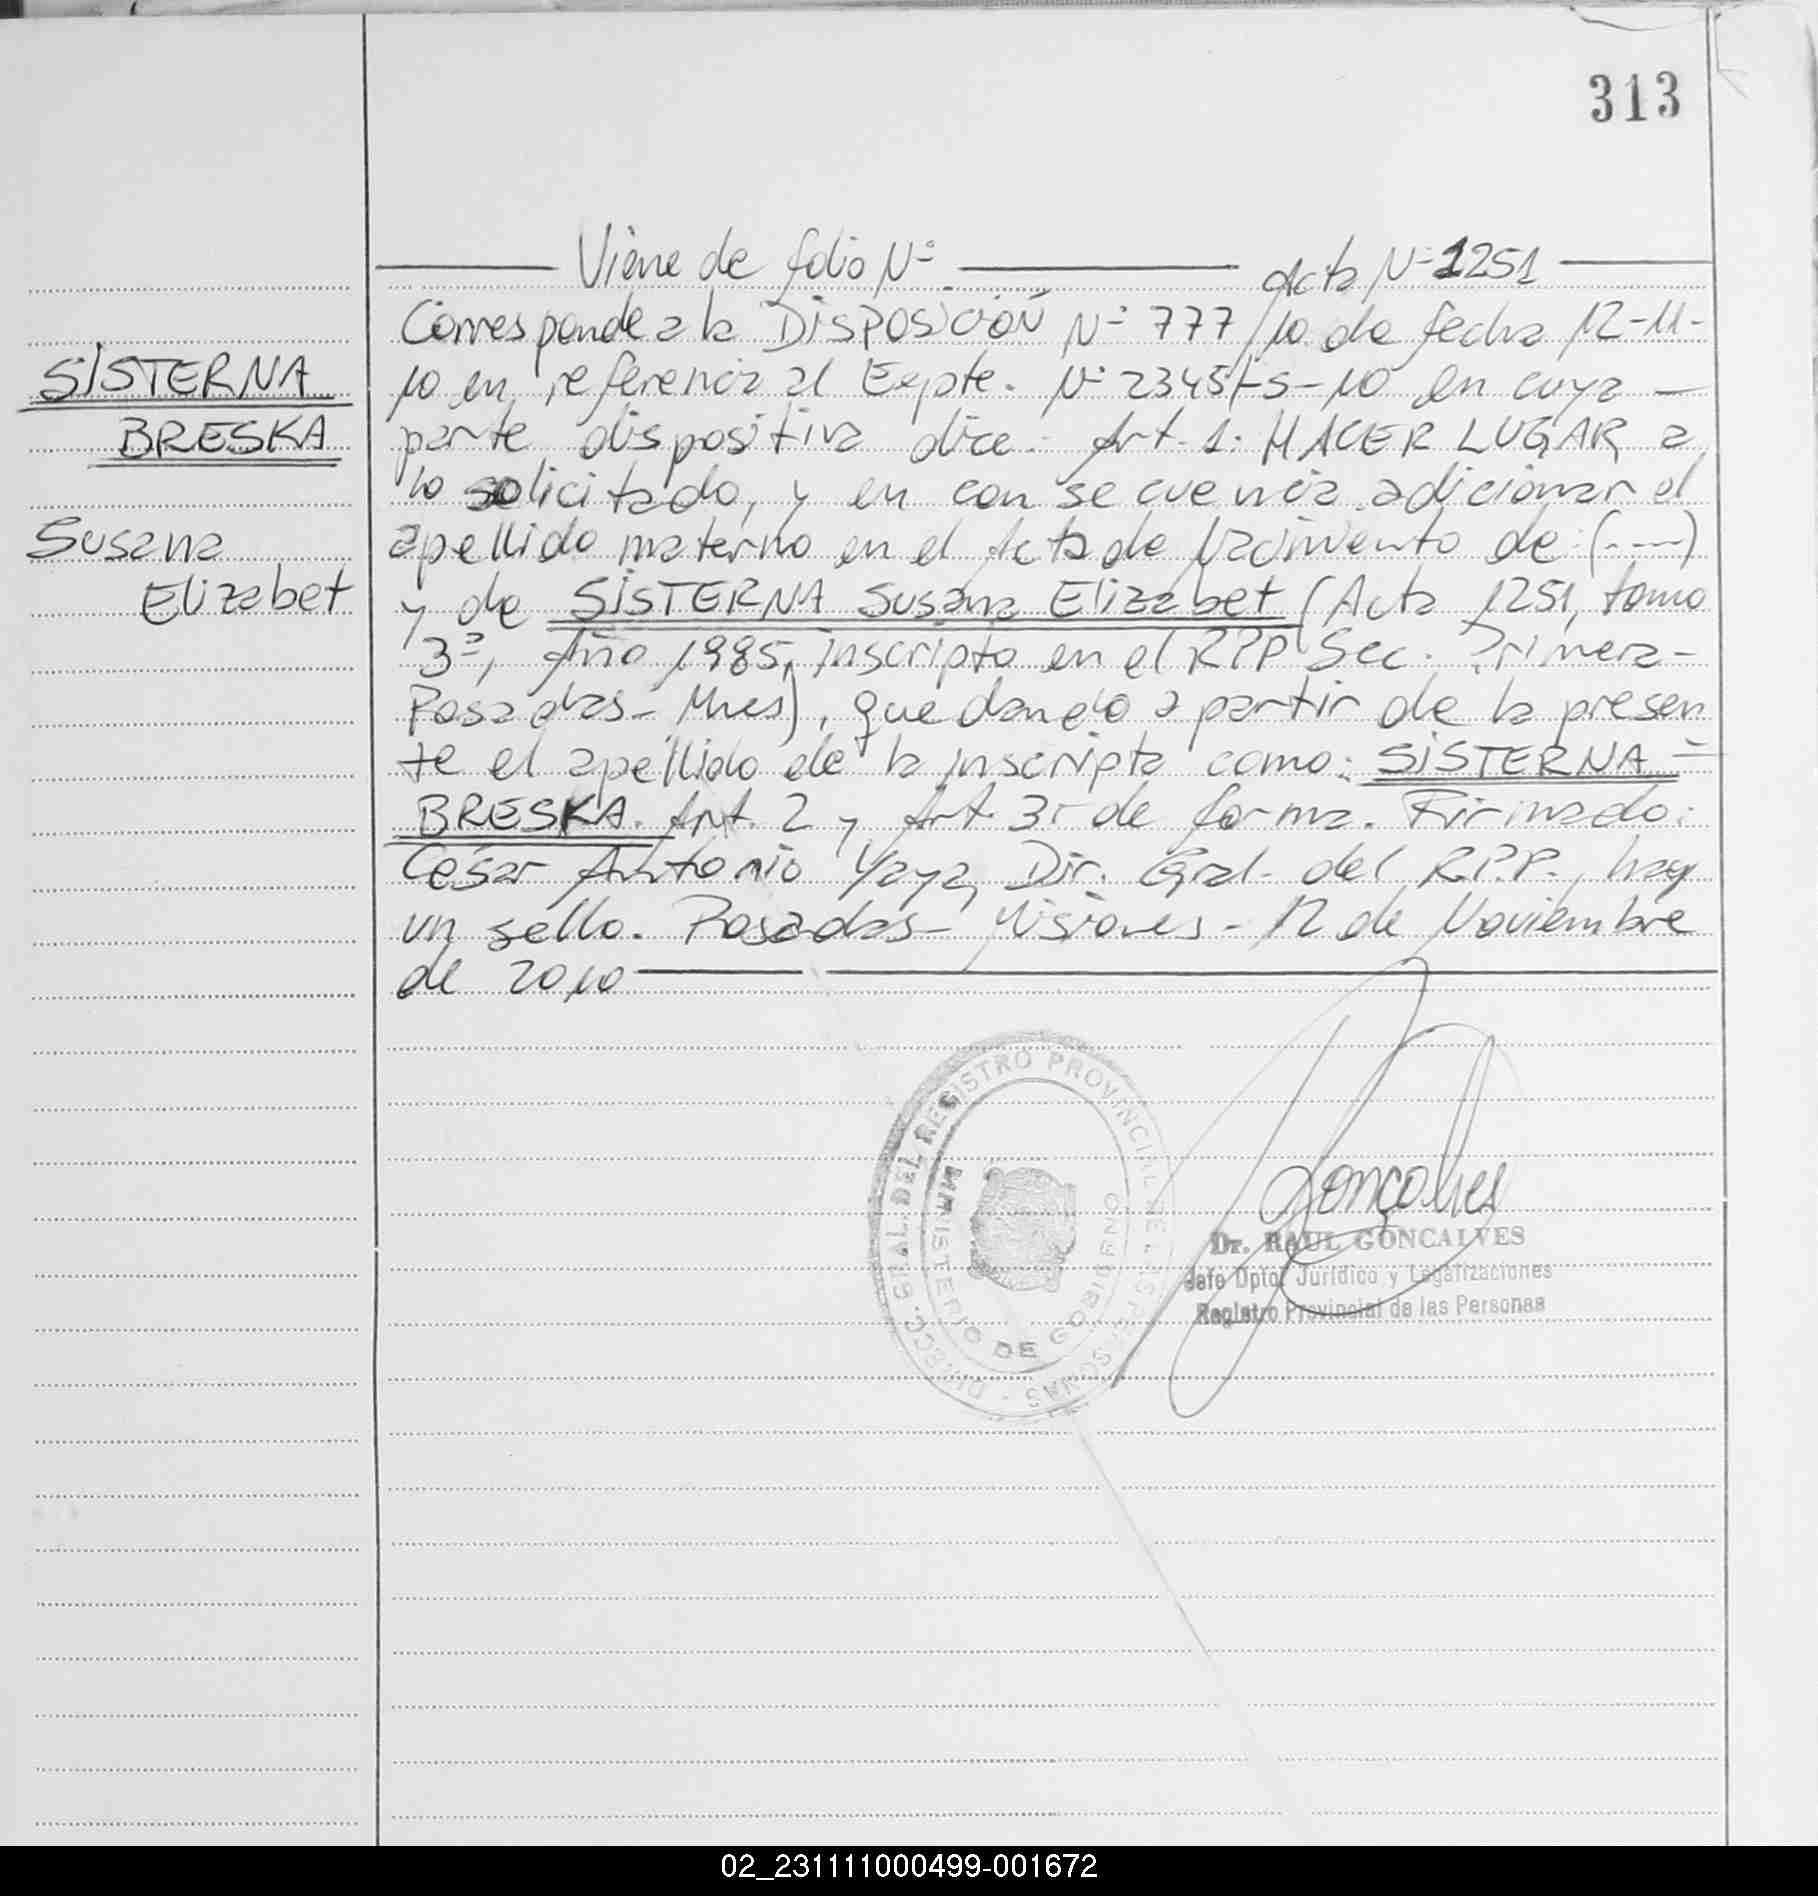 313
Viene de folio Nº Acta Nº 1251
Corresponde a la DISPOSICIÓN Nº 777/10 de fecha 12-11-
10 en referencia al Expte. Nº 2345-S-10 en cuya —
parte dispositiva dice: Art. 1: HACER LUGAR a
lo solicitado, y en consecuencia adicionar el
apellido materno en el Acta de Nacimiento de: (----)
y de SISTERNA Susana Elizabet (Acta 1251, tomo
3º, Año 1985, inscripto en el RPP Sec. Primera-
Posadas- Mnes), quedando a partir de la presen
te el apellido de la inscripta como: SISTERNA =
BRESKA. Art. 2 y Art. 3 de forma. Firmado:
César Antonio Yaya, Dir. Gral. del R.P.P., hay
un sello. Posadas- Misiones- 12 de Noviembre
de 2010
SISTERNA
BRESKA
Susana
Elizabet
DIRECC. GRAL. DEL REGISTRO PROVINCIAL DE LAS PERSONAS -
MINISTERIO DE GOBIERNO
Gonçalves
Dr. RAUL GONCALVES
Jefe Dpto. Jurídico y Legalizaciones
Registro Provincial de las Personas
02_231111000499-001672